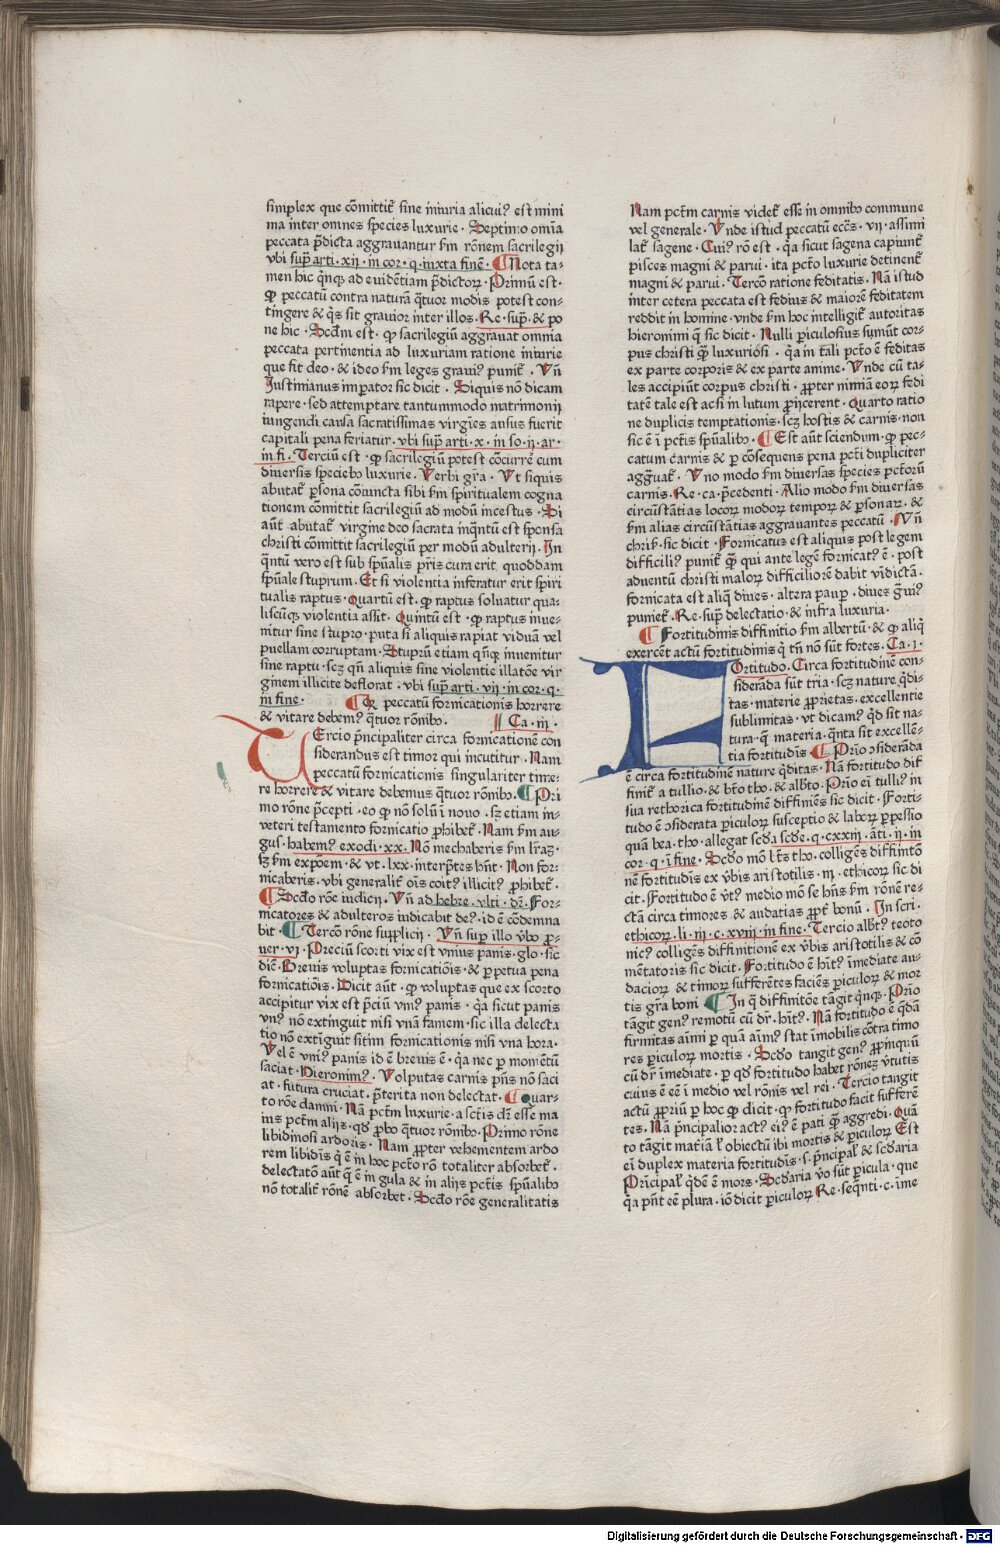 simplex que cōmittit̄ sine iniuria alicui⁹ est mini
ma inter omnes species luxurie · Septimo om̄ia
peccata p̄dicta aggrauantur ẜm rōnem sacrilegij
vbi sup̄ arti · xij · in cor · q · iuxta finē · ¶ Nota ta⸗
men hic qͥnqꝫ ad euidētiam p̄dictoꝝ · Primū est ·
ꝙ peccatū contra naturā qͣtuor modis potest con⸗
tingere & qͥs sit grauior inter illos · Re · sup̄ · & po
ne hic · Scd̄m est · ꝙ sacrilegiū aggrauat omnia
peccata pertinentia ad luxuriam ratione iniurie
que fit deo · & ideo ẜm leges graui⁹ punit̄ · Vn̄
Justinianus imꝑator sic dicit · Siquis nō dicam
rapere · sed attemptare tantummodo matrimonij
iungendi causa sacratissimas virgīes ausus fuerit
capitali pena feriatur · vbi sup̄ arti · x · in so · ij · ar ·
in fi · Terciū est · ꝙ sacrilegiū potest cōcurrē cum
diuersis speciebꝰ luxurie · Verbi gr̄a · Vt siquis
abutat̄ ꝑsona cōiuncta sibi ẜm spiritualem cogna
tionem cōmittit sacrilegiū ad modū incestus · Si
aūt abutat̄ virgine deo sacrata inqͣntū est sponsa
christi cōmittit sacrilegiū per modū adulterij · In
qͣntū vero est sub spūalis pr̄is cura erit quoddam
spūale stuprum · Et si violentia inferatur erit spiri
tualis raptus · Quartū est · ꝙ raptus soluatur qua⸗
liscūqꝫ violentia assit · Quintū est · ꝙ raptus inue⸗
nitur sine stupro · puta si aliquis rapiat viduā vel
puellam corruptam · Stuprū etiam qn̄qꝫ inuenitur
sine raptu · scꝫ qn̄ aliquis sine violentie illatōe vir
ginem illicite deflorat · vbi sup̄ arti · vij · in cor · q ·
in fine · ¶ Qꝛ peccatū fornicationis horrere
& vitare debem⁹ qͣtuor rōnibꝰ · ¶ Ca · iij ·
TErcio p̄ncipaliter circa fornicationē con
siderandus est timor qui incutitur · Nam
peccatū fornicationis singulariter time⸗
re horrere & vitare debemus qͣtuor rōnibꝰ · ¶ Pri
mo rōne p̄cepti · eo ꝙ nō solū ī nouo · sꝫ etiam in⸗
veteri testamento fornicatio ꝓhibet̄ · Nam ẜm au⸗
gus · habem⁹ exodi · xx · Nō mechaberis ẜm lr̄aꝫ ·
sꝫ ẜm expōem · & vt · lxx · interp̄tes hn̄t · Non for⸗
nicaberis · vbi generalit̄ oīs coit⁹ illicit⁹ ꝓhibet̄ ·
¶ Scd̄o rōe iudicij · Vn̄ ad hebre · vlti · dr̄ · For⸗
nicatores & adulteros iudicabit de⁹ · id ē cōdemna
bit · ¶ Tercō rōne supplicij · Vn̄ sup̄ illo v̄bo ꝓ⸗
uer · vi · Preciū scorti vix est vnius panis · glo · sic
dīc · Breuis voluptas fornicatiōis · & ꝑpetua pena
fornicatiōis · Dicit aūt · ꝙ voluptas que ex scorto
accipitur vix est p̄ciū vni⁹ panis · qͣa sicut panis
vn⁹ nō extinguit nisi vnā famem · sic illa delecta
tio nō extiguit sitim fornicationis nisi vna hora ·
Vel ē vni⁹ panis id ē breuis ē · qͣa nec ꝑ momētū
saciat · Hieronim⁹ · Volputas carnis p̄ns nō saci
at · futura cruciat · p̄terita non delectat · ¶ Quar⸗
to rōe damni · Nā pctm̄ luxurie · a sctīs dr̄ esse ma
ius pctm̄ alijs · qd̄ ꝓbo qͣtuor rōnibꝰ · Primo rōne
libidinosi ardoris · Nam ꝓpter vehementem ardo
rem libidis q̄ ē in hoc pctō rō totaliter absorbet̄ ·
delectatō aūt q̄ ē in gula & in alijs pctīs spūalibꝰ
nō totalit̄ rōnē absorbet · Scd̄o rōe generalitatis
Nam pctm̄ carnis videt̄ esse in omnibꝰ commune
vel generale · Vnde istud peccatū eccs̄ · vij · assimi
lat̄ sagene · Cui⁹ rō est · qͣa sicut sagena capiunt̄
pisces magni & parui · ita pctō luxurie detinent̄
magni & parui · Tercō ratione feditatis · Nā istud
inter cetera peccata est fedius & maiorē feditatem
reddit in homine · vnde ẜm hoc intelligit̄ autoritas
hieronimi q̄ sic dicit · Nulli ꝑiculosius sumūt cor⸗
pus christi qͣ̄ luxuriosi · qͣa in tali pctō ē feditas
ex parte corporis & ex parte anime · Vnde cū ta⸗
les accipiūt corpus christi · ꝓpter nimiā eoꝝ fedi
tatē tale est acsi in lutum ꝓijcerent · Quarto ratio
ne duplicis temptationis · scꝫ hostis & carnis · non
sic ē ī pctīs spūalibꝰ · ¶ Est aūt sciendum · ꝙ pec⸗
catum carnis & ꝑ cōsequens pena pctī dupliciter
aggͣuat̄ · Vno modo ẜm diuersas species pctōrū
carnis · Re · ca · p̄cedenti · Alio modo ẜm diuersas
circūstātias locoꝝ modoꝝ tempoꝝ & ꝑsonaꝝ · &
ẜm alias circūstātias aggrauantes peccatū · Vn̄
chrisͦ · sic dicit · Fornicatus est aliquis post legem
difficili⁹ punit̄ qͣ̄ qui ante legē fornicat⁹ ē · post
aduentū christi maloꝝ difficiliorē dabit vīdictā ·
fornicata est aliq̄ diues · altera paup̄ · diues gͣui⁹
puniet̄ · Re · sup̄ delectatio · & infra luxuria ·
¶ Fortitudinis diffinitio ẜm albertū · & ꝙ aliqͥ
exercēt actū fortitudinis qͥ tn̄ nō sūt fortes · Ca · j ·
FOrtitudo · Circa fortitudinē con⸗
siderāda sūt tria · scꝫ nature qͥdi⸗
tas · materie ꝓprietas · excellentie
sublimitas · vt dicam⁹ qͥd sit na⸗
tura · q̄ materia · qͣnta sit excellē⸗
tia fortitudīs · ¶ Prīo ɔsiderāda
ē circa fortitudinē nature qͥditas · Nā fortitudo dif
finit̄ a tullio · & bt̄o tho · & albt̄o · Prīo eī tulli⁹ in
sua rethorica fortitudinē diffiniēs sic dicit · Forti⸗
tudo ē ɔsiderata ꝑiculoꝝ susceptio & laboꝝ ꝑpessio
quā bea · tho · allegat scd̄a scd̄e · q · cxxiij · āti · ij · in
cor · q · ī fine · Scd̄o mō bt̄s tho · colligēs diffinitō
nē fortitudīs ex v̄bis aristotilis · iij · ethicoꝝ sic di
cit · Fortitudo ē v̄t⁹ medio mō se hn̄s ẜm rōnē re⸗
ctā circa timores & audatias ꝓpt̄ bonū · In scri ·
ethicoꝝ · li · iij · c · xviij · in fine · Tercio albt⁹ teoto
nic⁹ colligēs diffinitionē ex v̄bis aristotilis & cō
mētatoris sic dicit · Fortitudo ē hīt⁹ īmediate au⸗
dacioꝝ & timoꝝ sufferētes faciēs ꝑiculoꝝ & mor
tis gr̄a boni ¶ In q̄ diffinitōe tāgit qͥnqꝫ · Prīo
tāgit gen⁹ remotū cū dr̄ · hīt⁹ · Nā fortitudo ē qͥdā
firmitas aīmi ꝑ quā aīm⁹ stat īmobilis cōtra timo
res ꝑiculoꝝ mortis · Scd̄o tangit gen⁹ ꝓpinquū
cū dr̄ īmediate · ꝑ qd̄ fortitudo habet rōneꝫ v̄tutis
cuius ē eē ī medio vel rōnis vel rei · Tercio tangit
actū ꝓpriū ꝑ hoc ꝙ dicit · ꝙ fortitudo facit sufferē
tes · Nā p̄ncipalior act⁹ ei⁹ ē pati qͣ̄ aggredi · Quā
to tāgit mat̄iā ꝉ obiectū ibi mortis & ꝑiculoꝝ Est
eī duplex materia fortitudīs · s · p̄ncipaꝉ & scd̄aria
Prīcipaꝉ qͥdē ē mors · Scd̄aria v̄o sūt ꝑicula · que
qͣa pn̄t eē plura · iō dicit ꝑiculoꝝ Re · seqn̄ti · c · īme
Digitalisierung gefördert durch die Deutsche Forschungsgemeinschaft - DFG